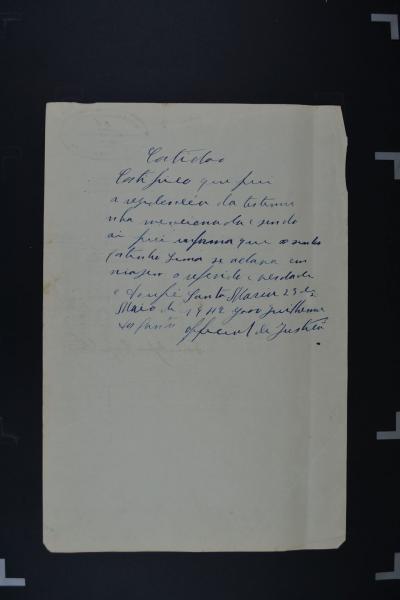 Certidão
Certifico que fui
a residencia da testemu
nha mencionada e sendo
ai fui informa que o senho
Lima se achava em
viajem o referido e verdade
e dou fé Santa Maria 23 de
Maio de 1942 João Guilherme
dos Santos official de Justiça